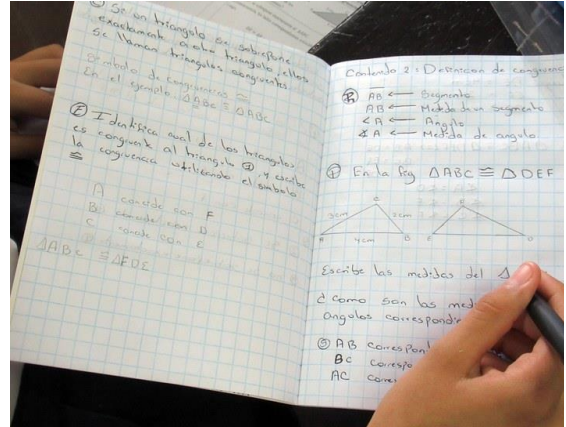 Si un triangulo se sobrepone
exactamente a otro triangulo, ellos
se llaman triangulos congruentes.
Simbolo de congruencia ≅
En el ejemplo △ABC ≅ △ABC
E Identifica cual de los triangulos,
es congruente al triangulo y escribe
la congruencia utilizando el simbolo
≅
A concide con F
B concide con D
C concide con E
△ABC ≅ △FDE
Contenido 2: Definicion de congruenc
R AB ← Segmento
AB ← Medida de un segmento
∢A ← Angulo
∡A ← Medida de angulo
P En la fig △ABC ≅ △DEF
3cm 2cm
A 4cm B E D
Escribe las medidas del △
¿como son las med
angulos correspondie
S AB correspon
BC correspo
AC corre